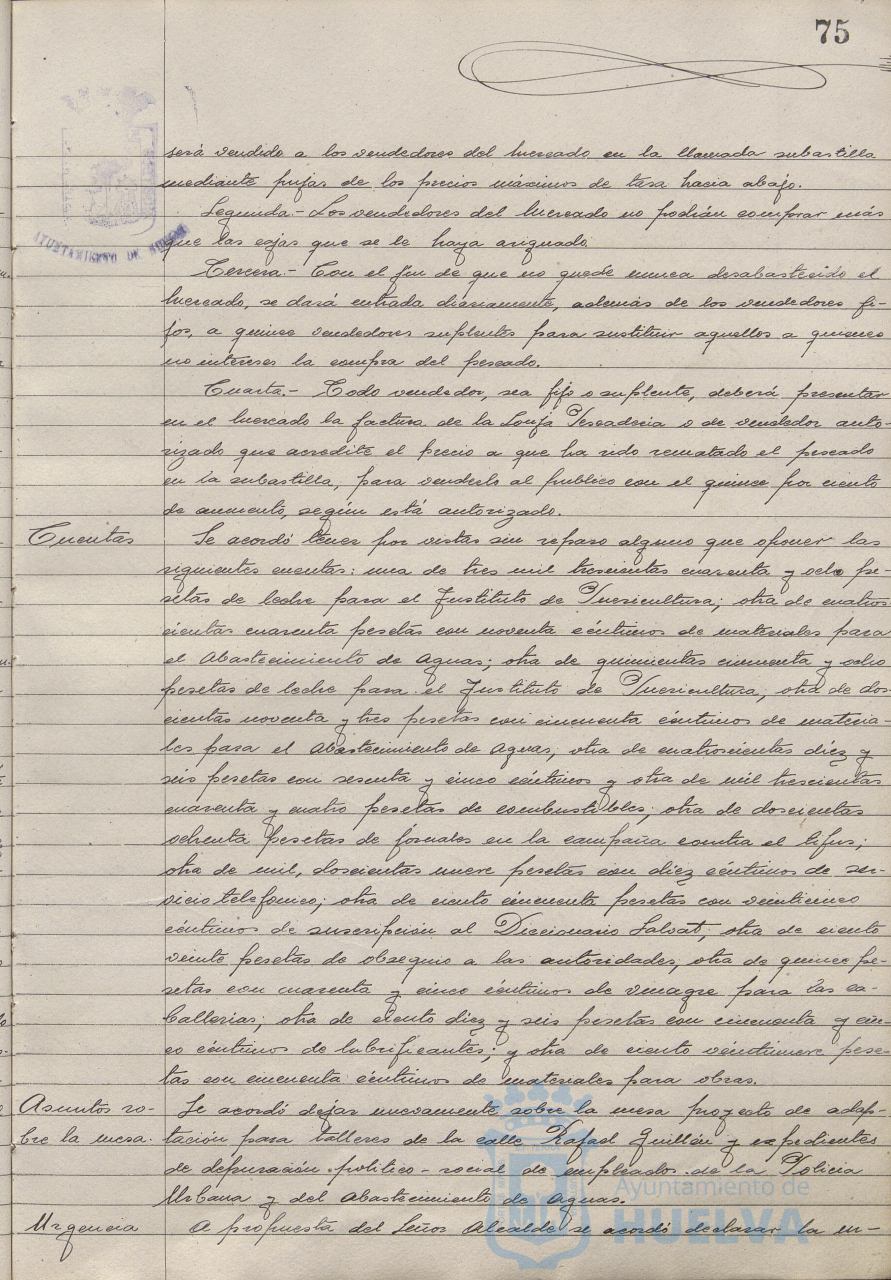 75
AYUNTAMIENTO DE HUELVA
será vendido a los vendedores del Mercado en la llamada subastilla
mediante pujas de los precios máximos de tasa hacia abajo.
Segunda.- Los vendedores del Mercado no podrán comprar más
que las cajas que se le haya asignado.
Tercera.- Con el fin de que no quede nunca desabastecido el
Mercado, se dará entrada diariamente, además de los vendedores fi-
jos, a quince vendedores suplentes para sustituir aquellos a quienes
no interese la compra del pescado.
Cuarta.- Todo vendedor, sea fijo o suplente, deberá presentar
en el Mercado la factura de la Lonja Pescadería o de vendedor auto-
rizado que acredite el precio a que ha sido rematado el pescado
en la subastilla, para venderlo al publico con el quince por ciento
de aumento, según está autorizado.
Cuentas Se acordó tener por vistas sin reparo alguno que oponer las
siguientes cuentas: una de tres mil trescientas cuarenta y ocho pe-
setas de leche para el Instituto de Puericultura; otra de cuatros-
cientas cuarenta pesetas con noventa céntimos de materiales para
el Abastecimiento de Aguas; otra de quinientas cincuenta y ocho
pesetas de leche para el Instituto de Puericultura, otra de dos-
cientas noventa y tres pesetas con cincuenta céntimos de materia-
les para el Abastecimiento de Aguas, otra de cuatroscientas diez y
seis pesetas con sesenta y cinco céntimos y otra de mil trescientas
cuarenta y cuatro pesetas de combustibles; otra de doscientas
ochenta pesetas de jornales en la campaña contra el tifus;
otra de mil, doscientas nueve pesetas con diez céntimos de ser-
vicio telefonico; otra de ciento cincuenta pesetas con veinticinco
céntimos de suscripción al Diccionario Salvat, otra de ciento
veinte pesetas de obsequio a las autoridades, otra de quince pe-
setas con cuarenta y cinco céntimos de vinagre para las ca-
ballerias; otra de ciento diez y seis pesetas con cincuenta y cin-
co céntimos de lubrificantes; y otra de ciento veintinueve pese-
tas con cincuenta céntimos de materiales para obras.
Asuntos so- Se acordó dejar nuevamente sobre la mesa proyecto de adap-
bre la mesa. tación para talleres de la calle Rafael Guillén y expedientes
de depuración politico-social de empleados de la Policia
Urbana y del Abastecimiento de Aguas.
Urgencia A propuesta del Señor Alcalde se acordó declarar la ur-
Ayuntamiento de
HUELVA